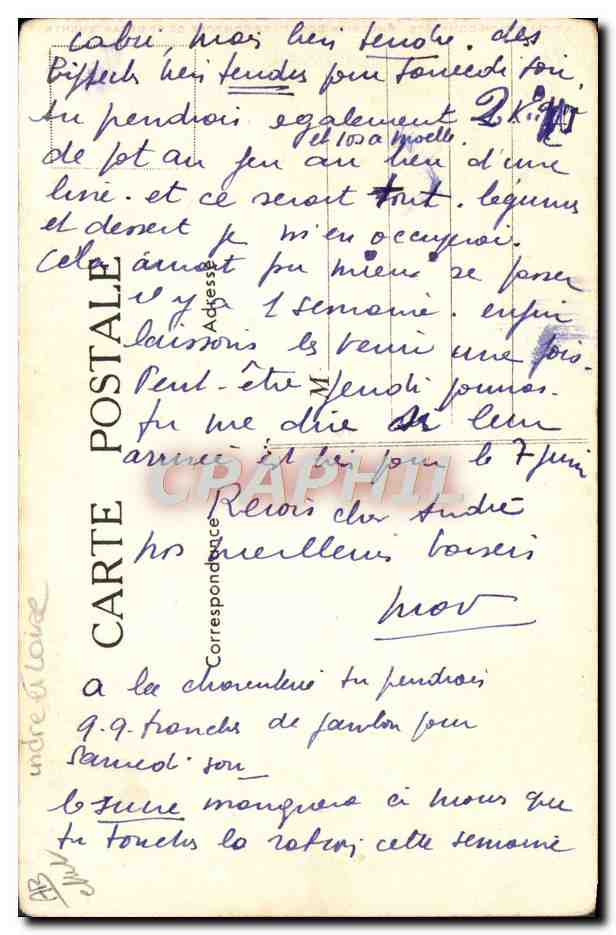 mais bien tendre. des
Biftecks bien tendres pour samedi soir,
tu prendrais également 2 K
et 1 os a moelle.
de pot au feu au lieu d'une
livre. et ce serait tout. légumes
et dessert je m'en occuperai.
Cela aurait pu mieux se passer
il y a 1 semaine. enfin
laissons les venir une fois.
Peut-être jeudi pourras-
tu me dire si leur
arrivée est bien pour le 7 juin
Reçois cher André
nos meilleurs baisers
a la charcuterie tu prendrais
q.q. tranches de jambon pour
samedi soir
le sucre manquera à moins que
tu touches la ration cette semaine
CARTE POSTALE
Correspondance
Adresse
M
CPAPHIL
indre et Loire
AB